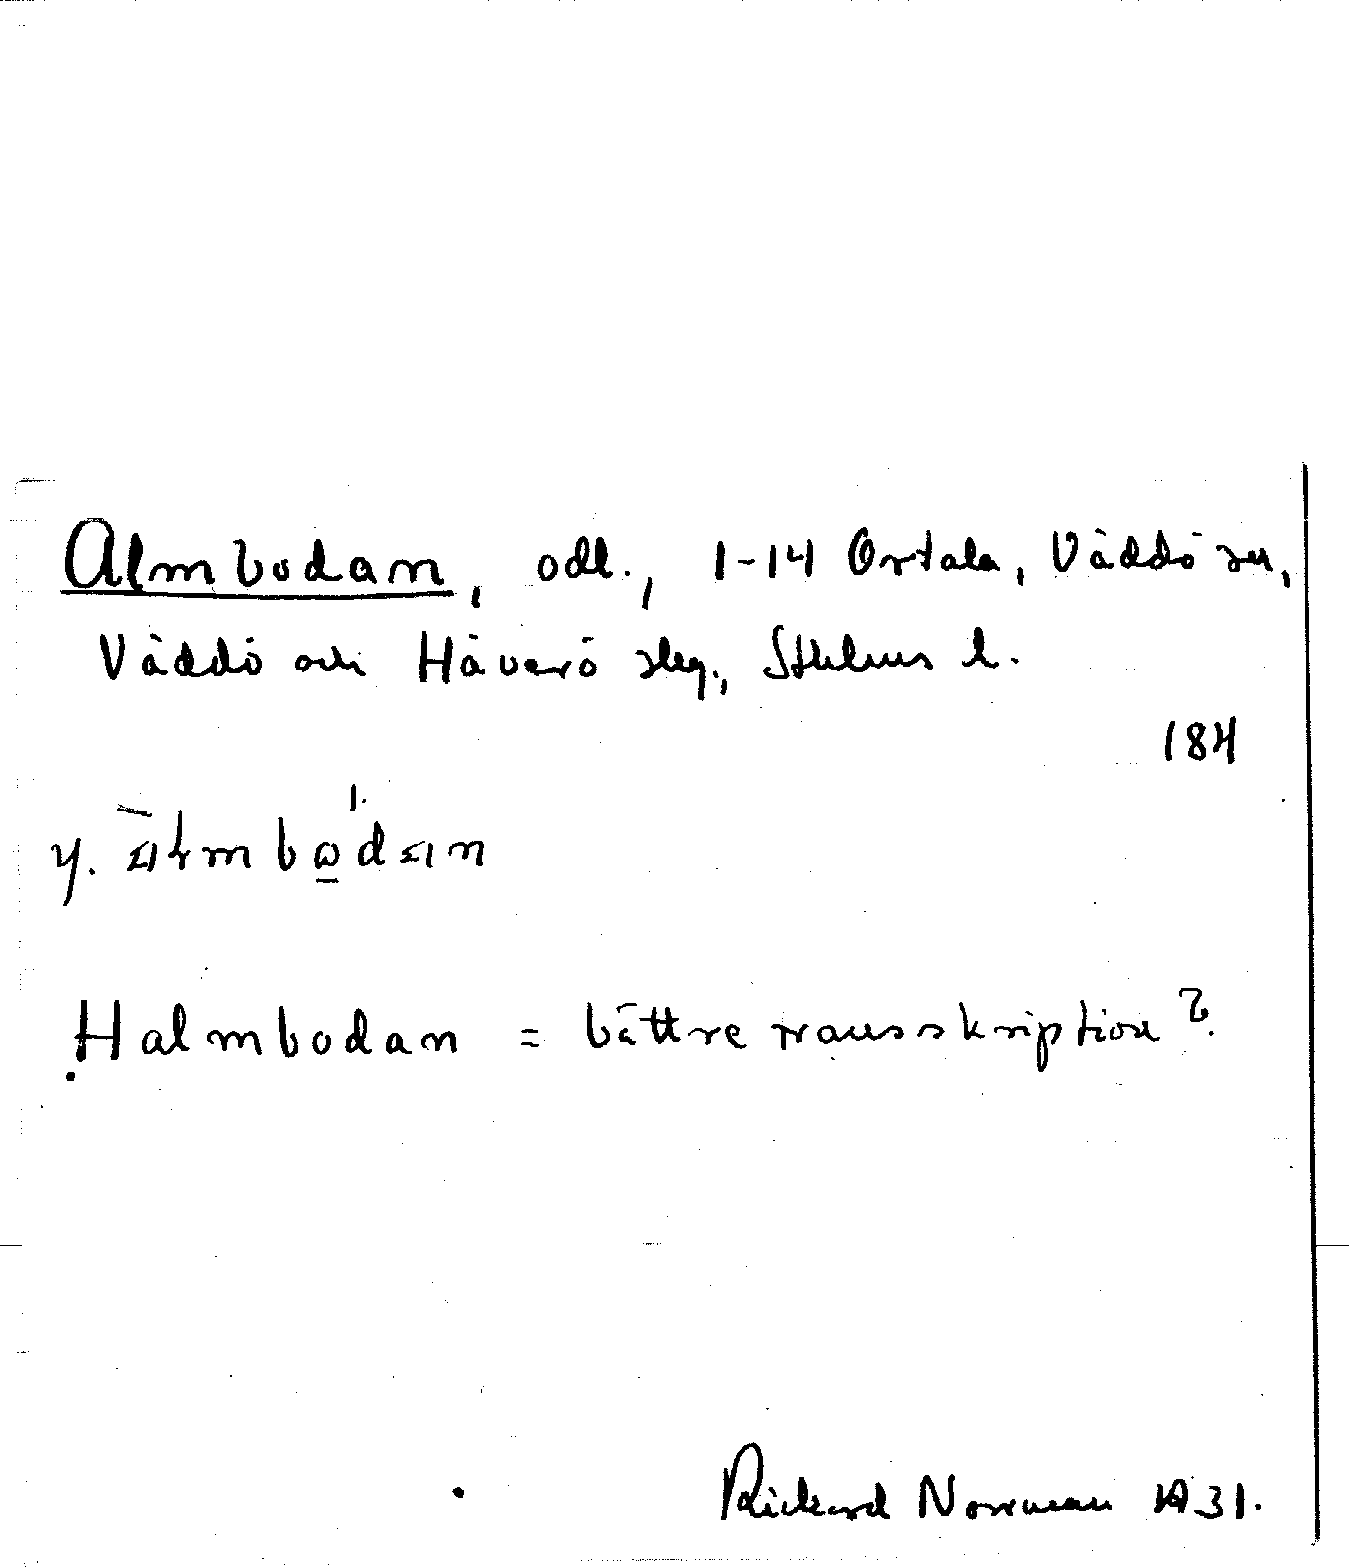 Almbodan, odl., 1-14 Ortala, Väddö sn,
Väddö och Häverö slg., Sthlms l.
184
y.
Halmbodan = bättre transskription?
Rickard Norrman 1931.